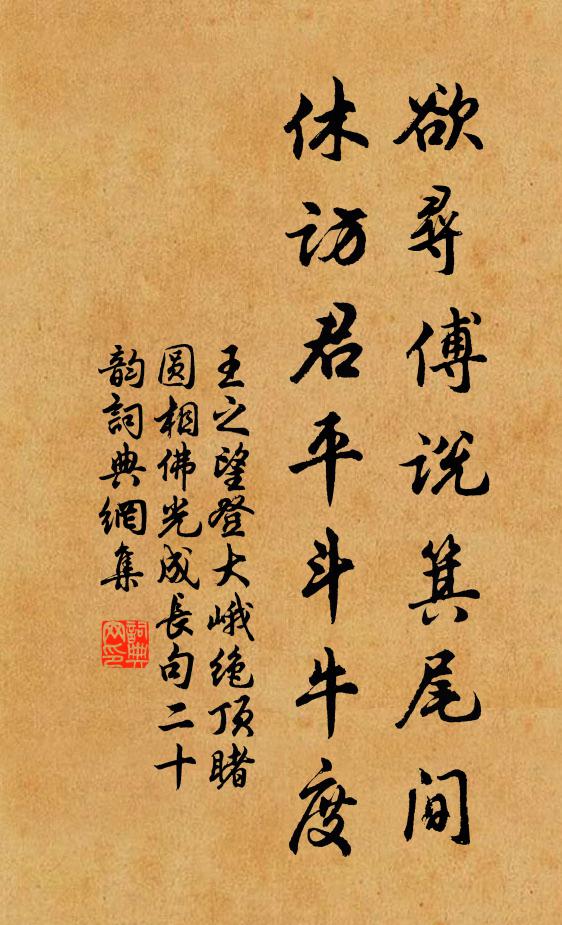 欲尋傅说箕尾间
休访君平斗牛度
王之望登大峨绝顶睹
圆相佛光成長句二十
韵詞典網集
詞典
网印